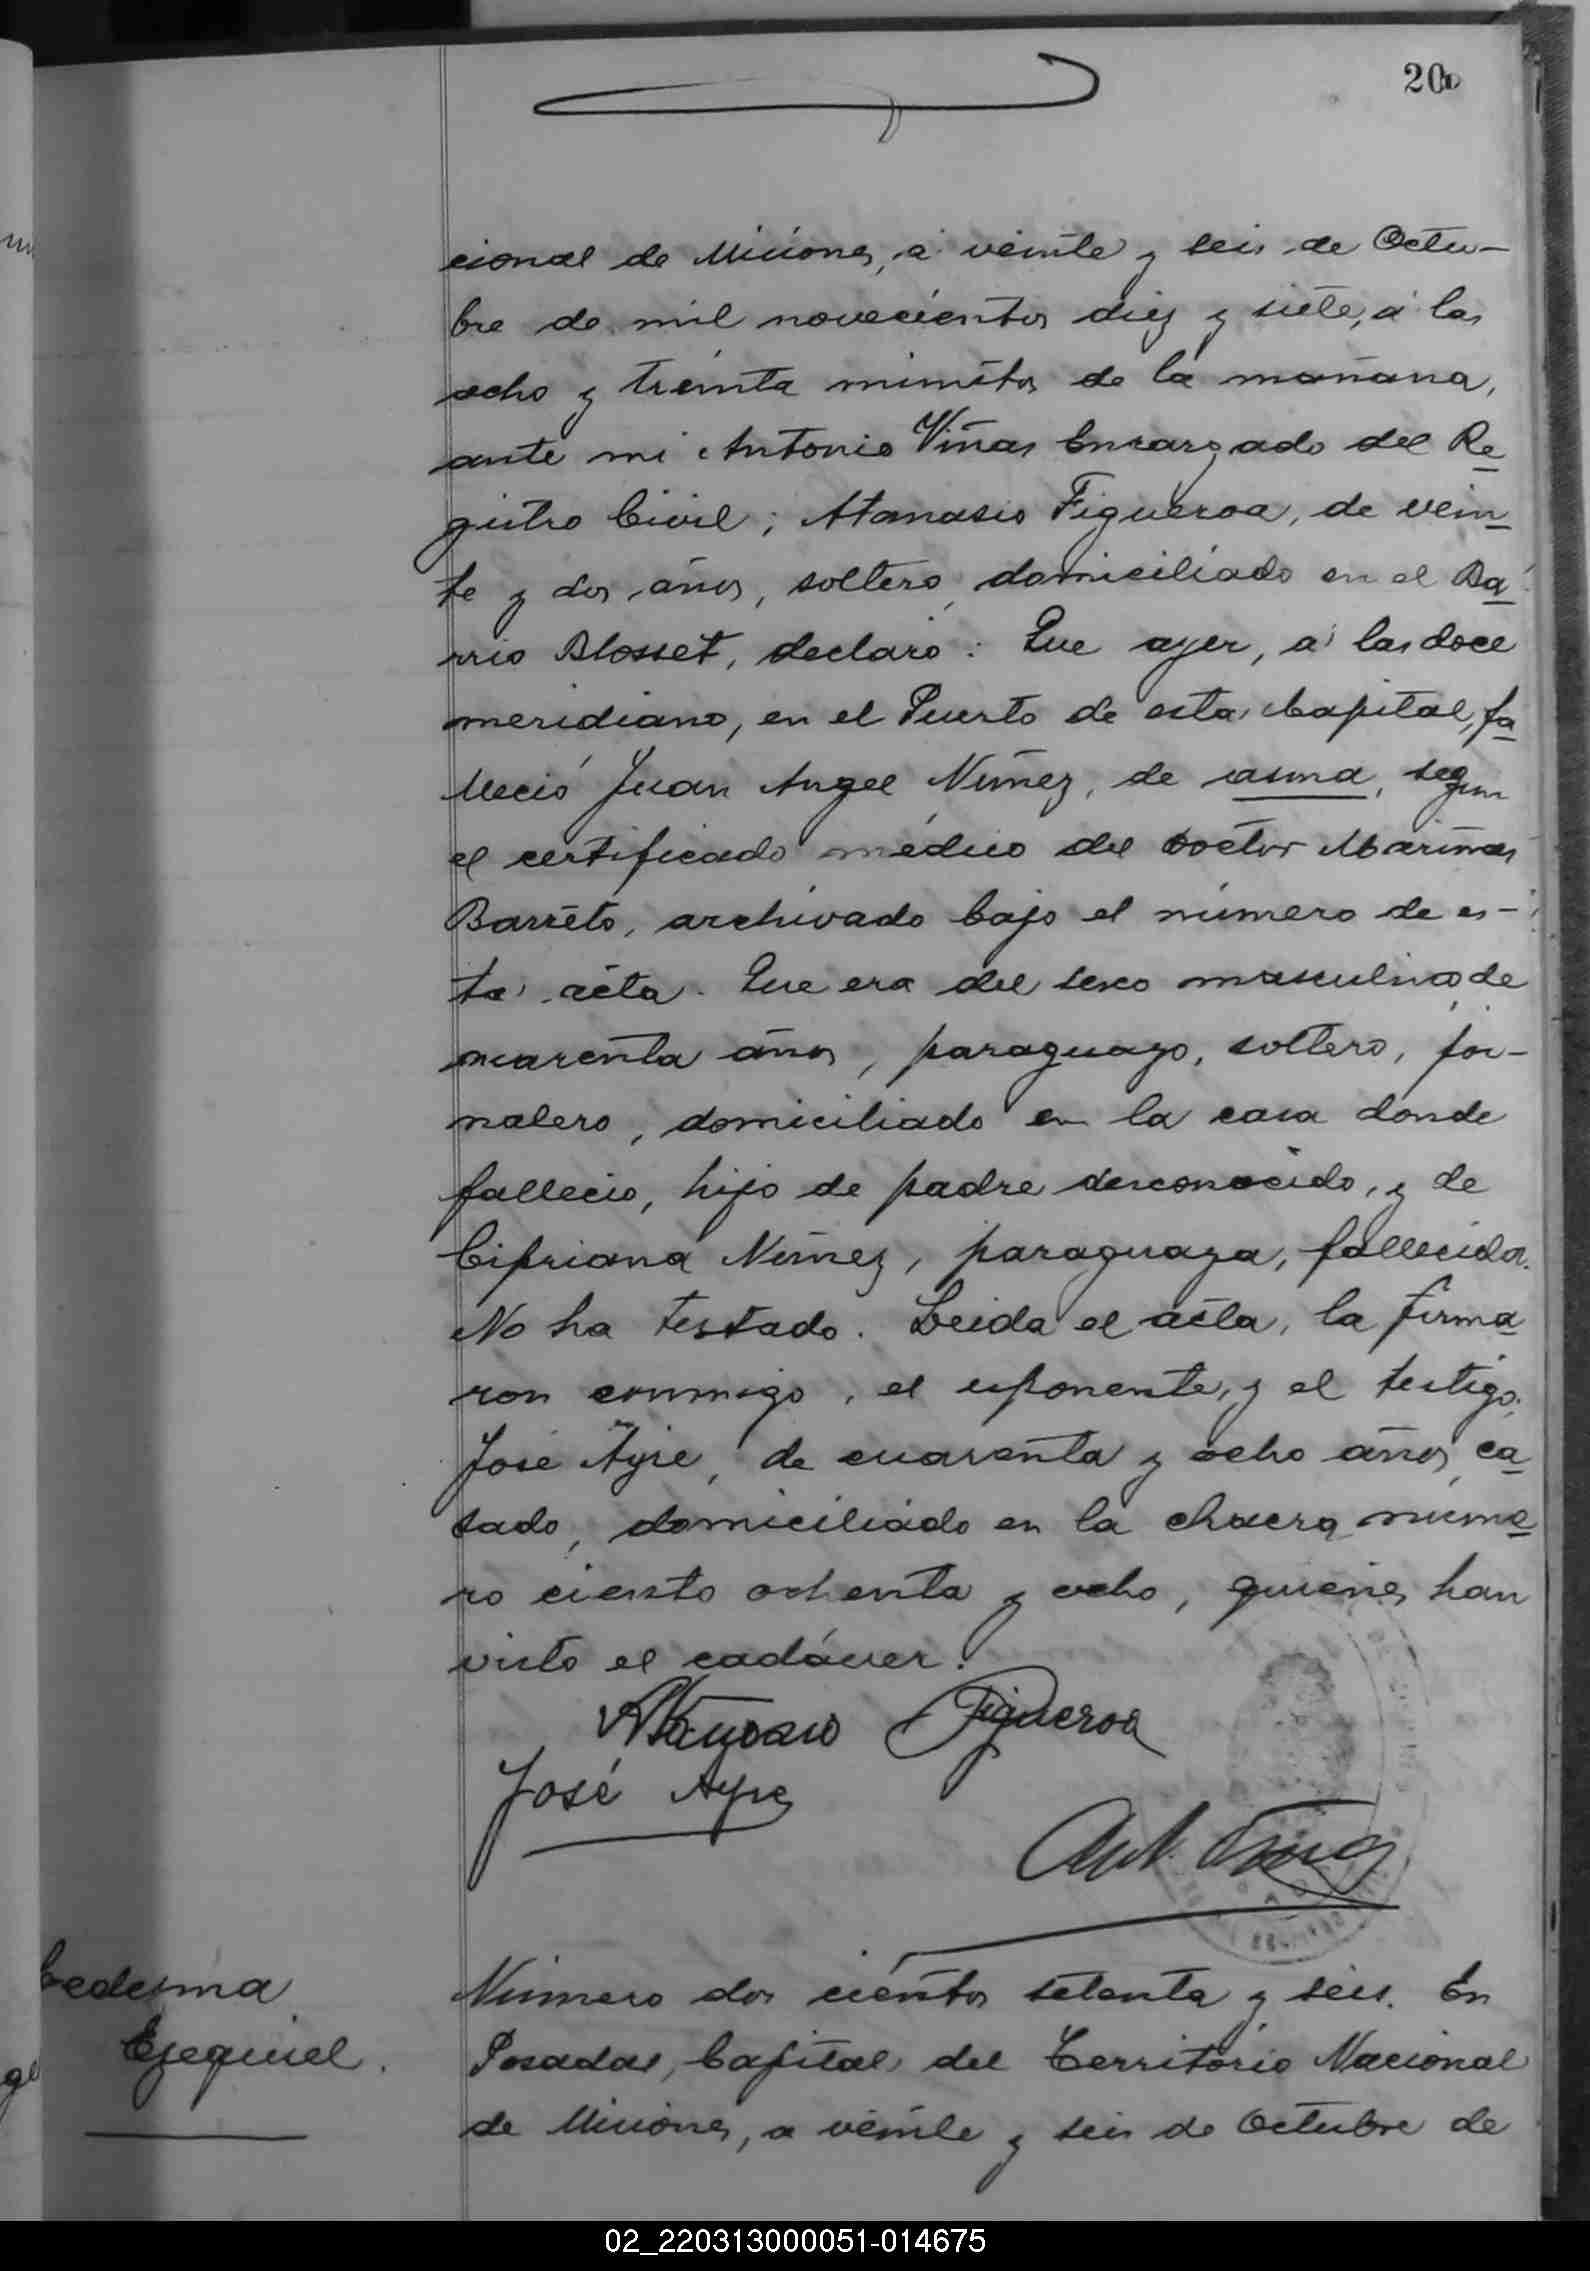 200
cional de Misiones, á veinte y seis de Octu-
bre de mil novecientos diez y siete, á las
ocho y treinta minutos de la mañana,
ante mi Antonio Viñas Encargado del Re-
gistro Civil; Atanasio Figueroa, de vein-
te y dos años, soltero, domiciliado en el Ba-
rrio Blosset, declaró: Que ayer, á las doce
meridiano, en el Puerto de esta Capital, fa-
lleció Juan Angel Nuñez, de asma, segun
el certificado médico del Doctor Mariano
Barreto, archivado bajo el número de es-
ta acta. Que era del sexo masculino, de
cuarenta años, paraguayo, soltero, jor-
nalero, domiciliado en la casa donde
fallecio, hijo de padre desconocido, y de
Cipriana Nuñez, paraguaya, fallecida.
No ha testado. Leida el acta, la firma-
ron conmigo, el exponente, y el testigo,
José Ayre, de cuarenta y ocho años, ca-
sado, domiciliado en la chacra núme-
ro ciento ochenta y ocho, quienes han
visto el cadáver.
Atanasio Figueroa
José Ayre
Ant. Viñas
Ledesma
Ezequiel.
Número dos cientos setenta y seis. En
Posadas, Capital del Territorio Nacional
de Misiones, a veinte y seis de Octubre de
02_220313000051-014675